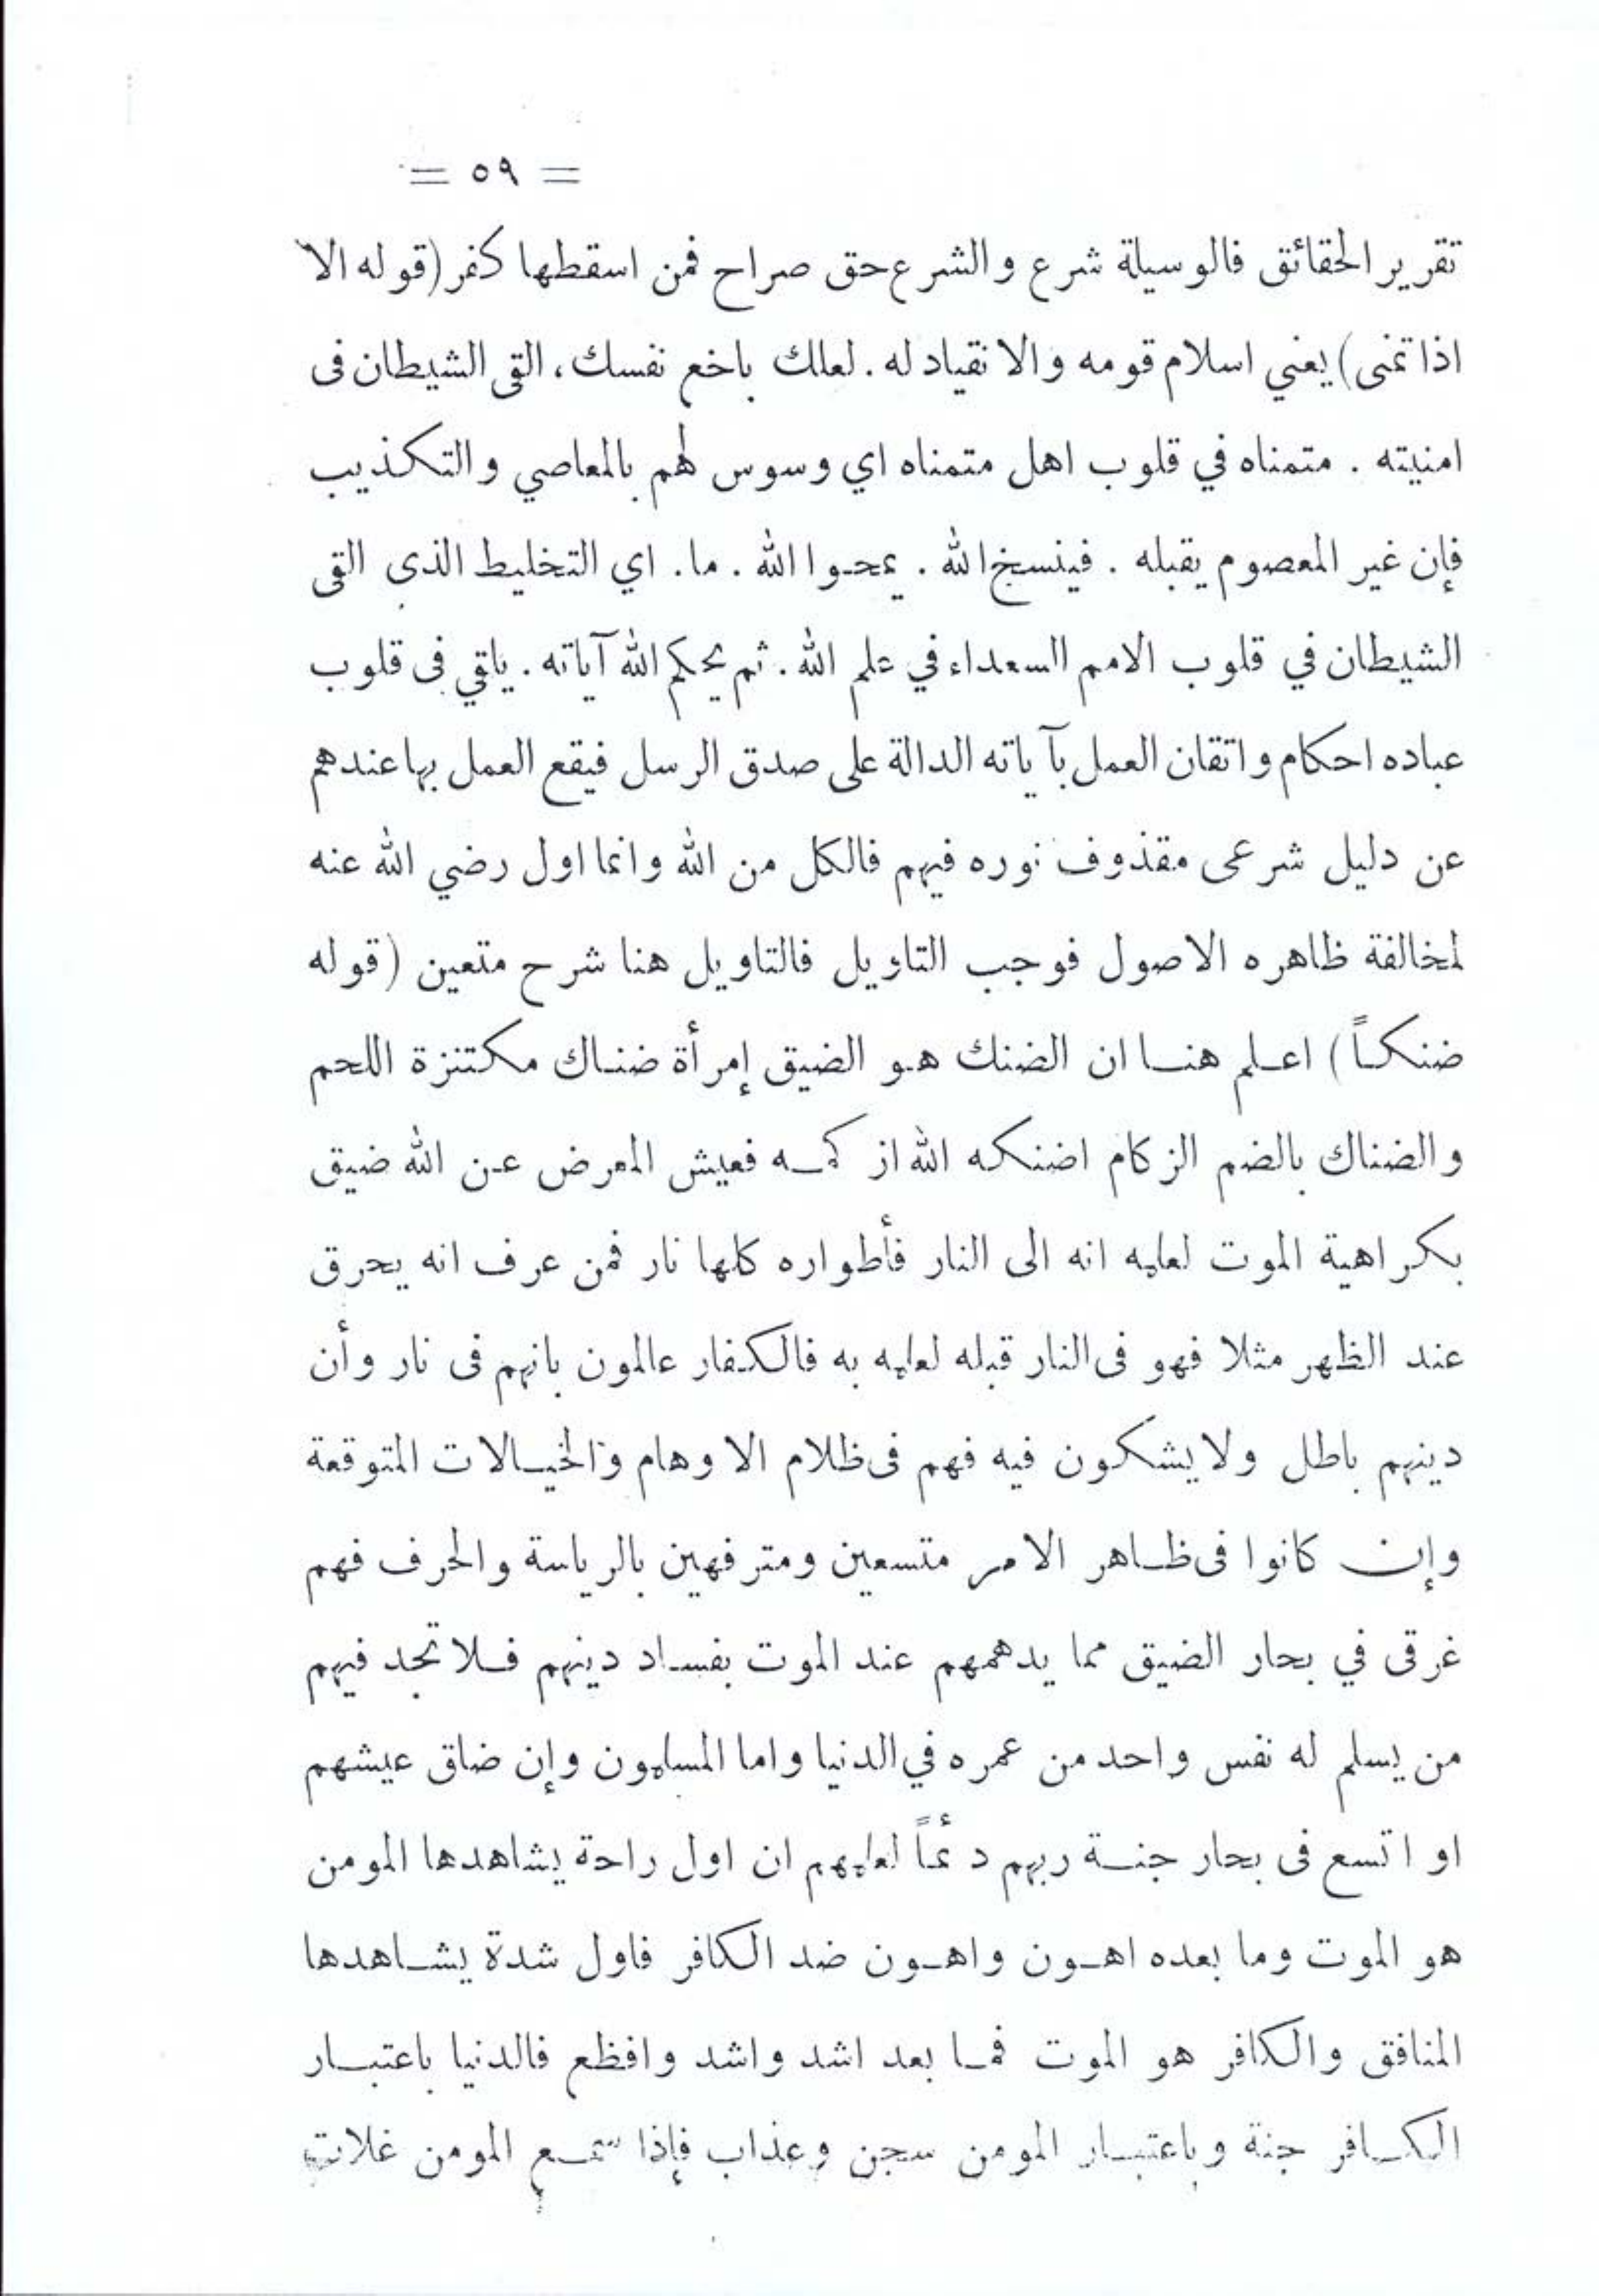 = ٥٩ =
تقرير الحقائق فالوسيلة شرع والشرع حق صراح فمن اسقطها كفر (قوله الا
اذا تمنى) يعني اسلام قومه والانقياد له. لعلك باخع نفسك، القى الشيطان فى
امنيته . متمناه في قلوب اهل متمناه اي وسوس لهم بالمعاصي والتكذيب
فإن غير المعصوم يقبله . فينسخ الله . يمحوا الله . ما. اي التخليط الذى القى
الشيطان في قلوب الامم السعداء في علم الله. ثم يحكم الله آياته. ياقي فى قلوب
عباده احكام واتقان العمل بآياته الدالة على صدق الرسل فيقع العمل بها عندهم
عن دليل شرعى مقذوف نوره فيهم فالكل من الله وانما اول رضي الله عنه
لمخالفة ظاهره الاصول فوجب التاويل فالتاويل هنا شرح متعين (قوله
ضنكاً) اعلم هنا ان الضنك هو الضيق إمرأة ضناك مكتنزة اللحم
والضناك بالضم الزكام اضنكه الله ازكمه فعيش المعرض عن الله ضيق
بكراهية الموت لعلمه انه الى النار فأطواره كلها نار فمن عرف انه يحرق
عند الظهر مثلا فهو فى النار قبله لعلمه به فالكفار عالمون بانهم فى نار وأن
دينهم باطل ولا يشكون فيه فهم فى ظلام الاوهام والخيالات المتوقعة
وإن كانوا فى ظاهر الامر متسعين ومترفهين بالرياسة والحرف فهم
غرقى في بحار الضيق مما يدهمهم عند الموت بفساد دينهم فلا تجد فيهم
من يسلم له نفس واحد من عمره في الدنيا واما المسلمون وإن ضاق عيشهم
او اتسع فى بحار جنة ربهم دئماً لعلمهم ان اول راحة يشاهدها المومن
هو الموت وما بعده اهون واهون ضد الكافر فاول شدة يشاهدها
المنافق والكافر هو الموت فما بعد اشد واشد وافظع فالدنيا باعتبار
الكافر جنة وباعتبار المومن سجن وعذاب فإذا سمع المومن غلات